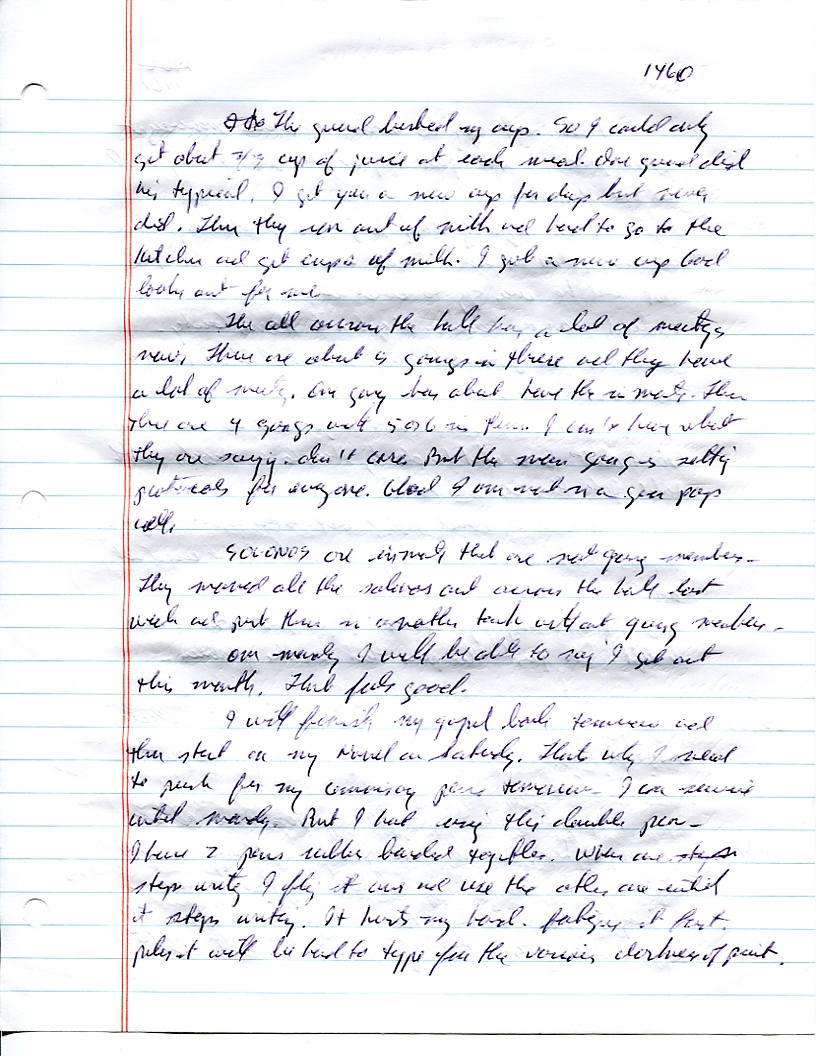 1460
The guard busted my cup. So I could only
get about 3/4 cup of juice at each meal. One guard did
his typical, I get you a new cup for days but never
did. Then they ran out of milk and had to go to the
kitchen and get cups of milk. I got a new cup God
looks out for me.
The cell across the hall has a lot of meetings
now. There are about gangs in there and they have
a lot of meetings. One gang has about the inmates. Then
there are 4 gangs with 5 or 6 in them. I can't hear what
they are saying. don't care. But the main gang is setting
protocols for everyone. Glad I am not in a gen pop
cell.
SOLONOS are inmates that are not gang members.
They moved all the solonos out across the hall last
week and put them in another tank without gang members.
on monday I will be able to say I get out
this month. That feels good.
I will finish my gospel book tomorrow and
then start on my Novel on Saturday. That's why I need
to push for my commissary pens tomorrow. I can survive
until monday. But I hate using this double pen.
I have 2 pens rubber banded together. When one
stops writing I flip it over and use the other one until
it stops writing. It hurts my hand. fatigues it fast.
plus it will be hard to type from the various darkness of print.